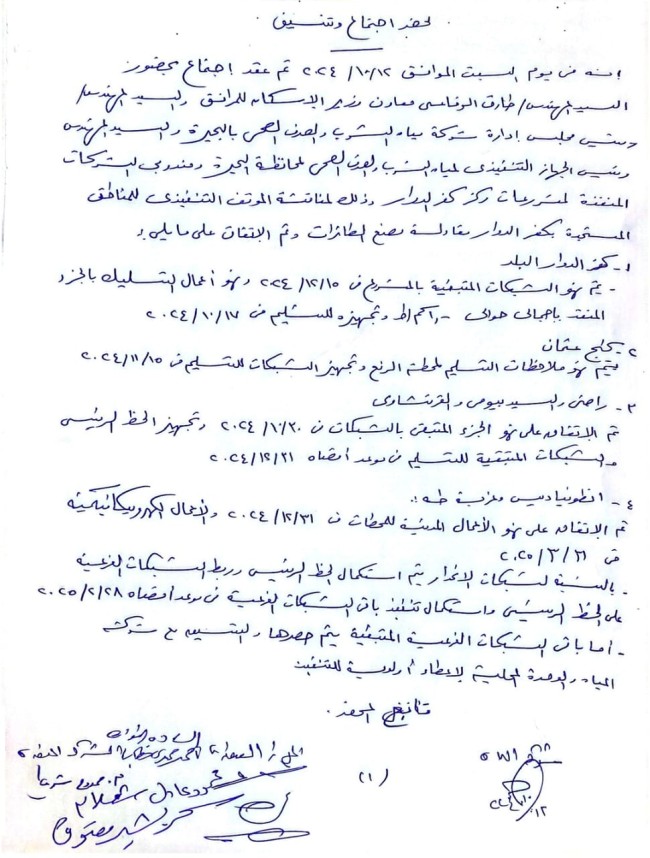 محضر اجتماع وتنسيق
إنه في يوم السبت الموافق ٢٠٢٤/١٠/١٢ تم عقد إجتماع بحضور
السيد المهندس/ طارق الرفاعى معاون وزير الإسكان للمرافق والسيد المهندس/
رئيس مجلس إدارة شركة مياه الشرب والصرف الصحى بالبحيرة والسيد المهندس
رئيس الجهاز التنفيذى لمياه الشرب والصرف الصحى لمحافظة البحيرة ومندوبى الشركات
المنفذة لمشروعات مركز كفر الدوار وذلك لمناقشة الموقف التنفيذى للمناطق
بكفر الدوار مقاولة مصنع الطائرات وتم الإتفاق على ما يلى :
١- كفر الدوار البلد
- يتم نهو الشبكات المتبقية بالمشروع فى ٢٠٢٤/١٢/١٥ ونهو أعمال التسليك بالجزء
المنفذ بإجمالى حوالى وتجهيزه للتسليم فى ٢٠٢٤/١٠/١٧
٢- خليج عثمان
فيتم نهو ملاحظات التسليم لمحطة الرفع وتجهيز الشبكات للتسليم فى ٢٠٢٤/١١/١٥
٣- والسيد بيومى
تم الإتفاق على نهو الجزء المتبقى بالشبكات فى ٢٠٢٤/١٠/٣٠ وتجهيز الخط الرئيسى
والشبكات المتبقية للتسليم فى موعد أقصاه ٢٠٢٤/١٢/٣١
٤- انطونيادس وعزبة طه :
تم الإتفاق على نهو الأعمال المدنية للمحطات فى ٢٠٢٤/١٢/٣١ والأعمال الكهروميكانيكية
فى ٢٠٢٥/٣/٣١
- بالنسبة لشبكات الانحدار يتم استكمال الخط الرئيسى وربط الشبكات الفرعية
على الخط الرئيسى واستكمال تنفيذ باقى الشبكات الفرعية فى موعد أقصاه ٢٠٢٥/٢/٢٨
- أما باقى الشبكات الفرعية المتبقية يتم حصرها والتنسيق مع شركة
المياه والوحدة المحلية لإعطاء أولوية للتنفيذ
المحضر .
(١)